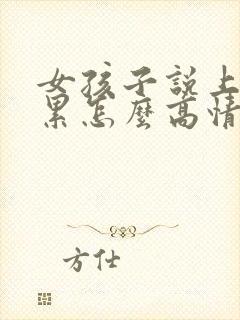 女孩子說上
累怎麼高情
方仕